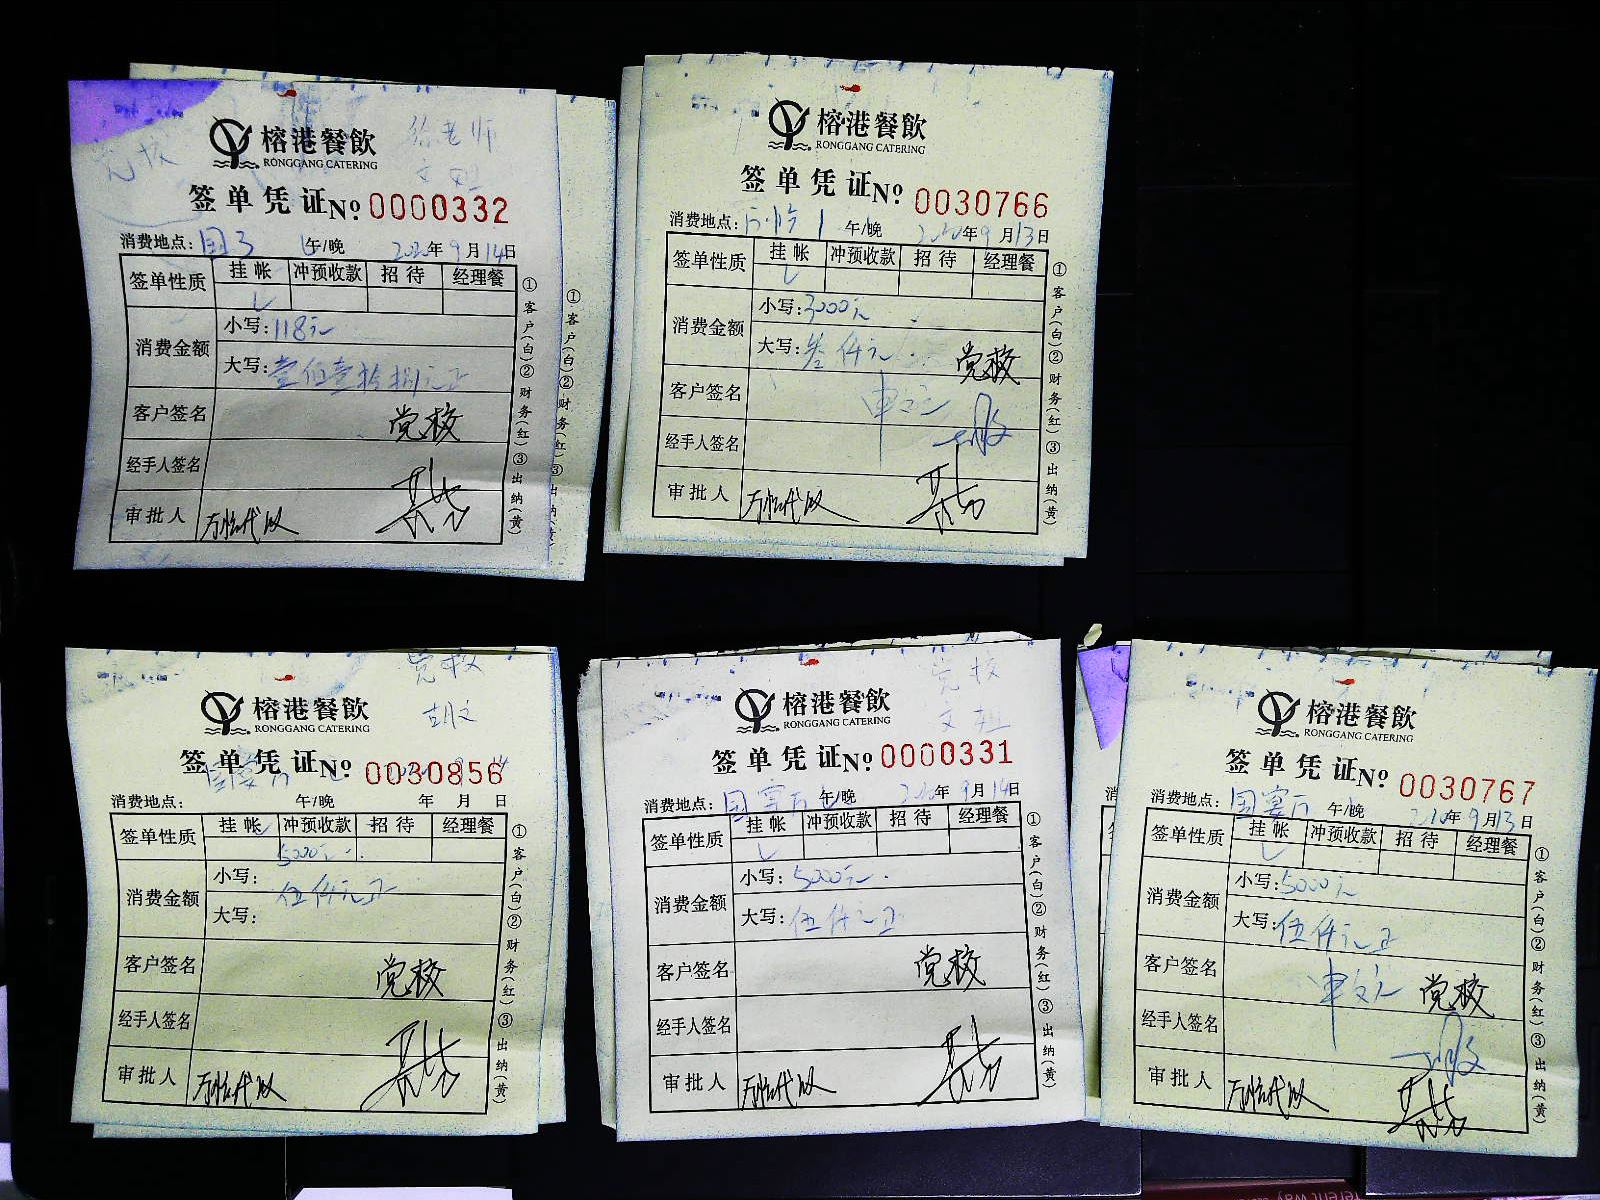 徐老师
党校
榕港餐飲
RONGGANG CATERING
签单凭证No. 0000332
消费地点: 国3 午/晚 2020年9月14日
签单性质 挂帐 冲预收款 招待 经理餐
消费金额 小写: 118元
大写: 壹佰壹拾捌元正
客户签名 党校
经手人签名
审批人
①客户(白)②财务(红)③出纳(黄)
①客户(白)②财务(红)③出纳(黄)
榕港餐飲
RONGGANG CATERING
签单凭证No. 0030766
消费地点: 午/晚 2020年9月13日
签单性质 挂帐 冲预收款 招待 经理餐
消费金额 小写: 3000元
大写: 叁仟元 党校
客户签名
经手人签名
审批人
①客户(白)②财务(红)③出纳(黄)
党校
榕港餐飲
RONGGANG CATERING
签单凭证No. 0030856
国宴厅
消费地点: 午/晚 年 月 日
签单性质 挂帐 冲预收款 招待 经理餐
5000元
消费金额 小写:
伍仟元正
大写:
客户签名 党校
经手人签名
审批人
①客户(白)②财务(红)③出纳(黄)
党校
榕港餐飲
RONGGANG CATERING
签单凭证No. 0000331
消费地点: 国宴厅 午/晚 2020年9月14日
签单性质 挂帐 冲预收款 招待 经理餐
消费金额 小写: 5000元
大写: 伍仟元正
客户签名 党校
经手人签名
审批人
①客户(白)②财务(红)③出纳(黄)
榕港餐飲
RONGGANG CATERING
签单凭证No. 0030767
消费地点: 国宴厅 午/晚 2020年9月13日
签单性质 挂帐 冲预收款 招待 经理餐
消费金额 小写: 5000元
大写: 伍仟元正
客户签名 党校
经手人签名
审批人
①客户(白)②财务(红)③出纳(黄)